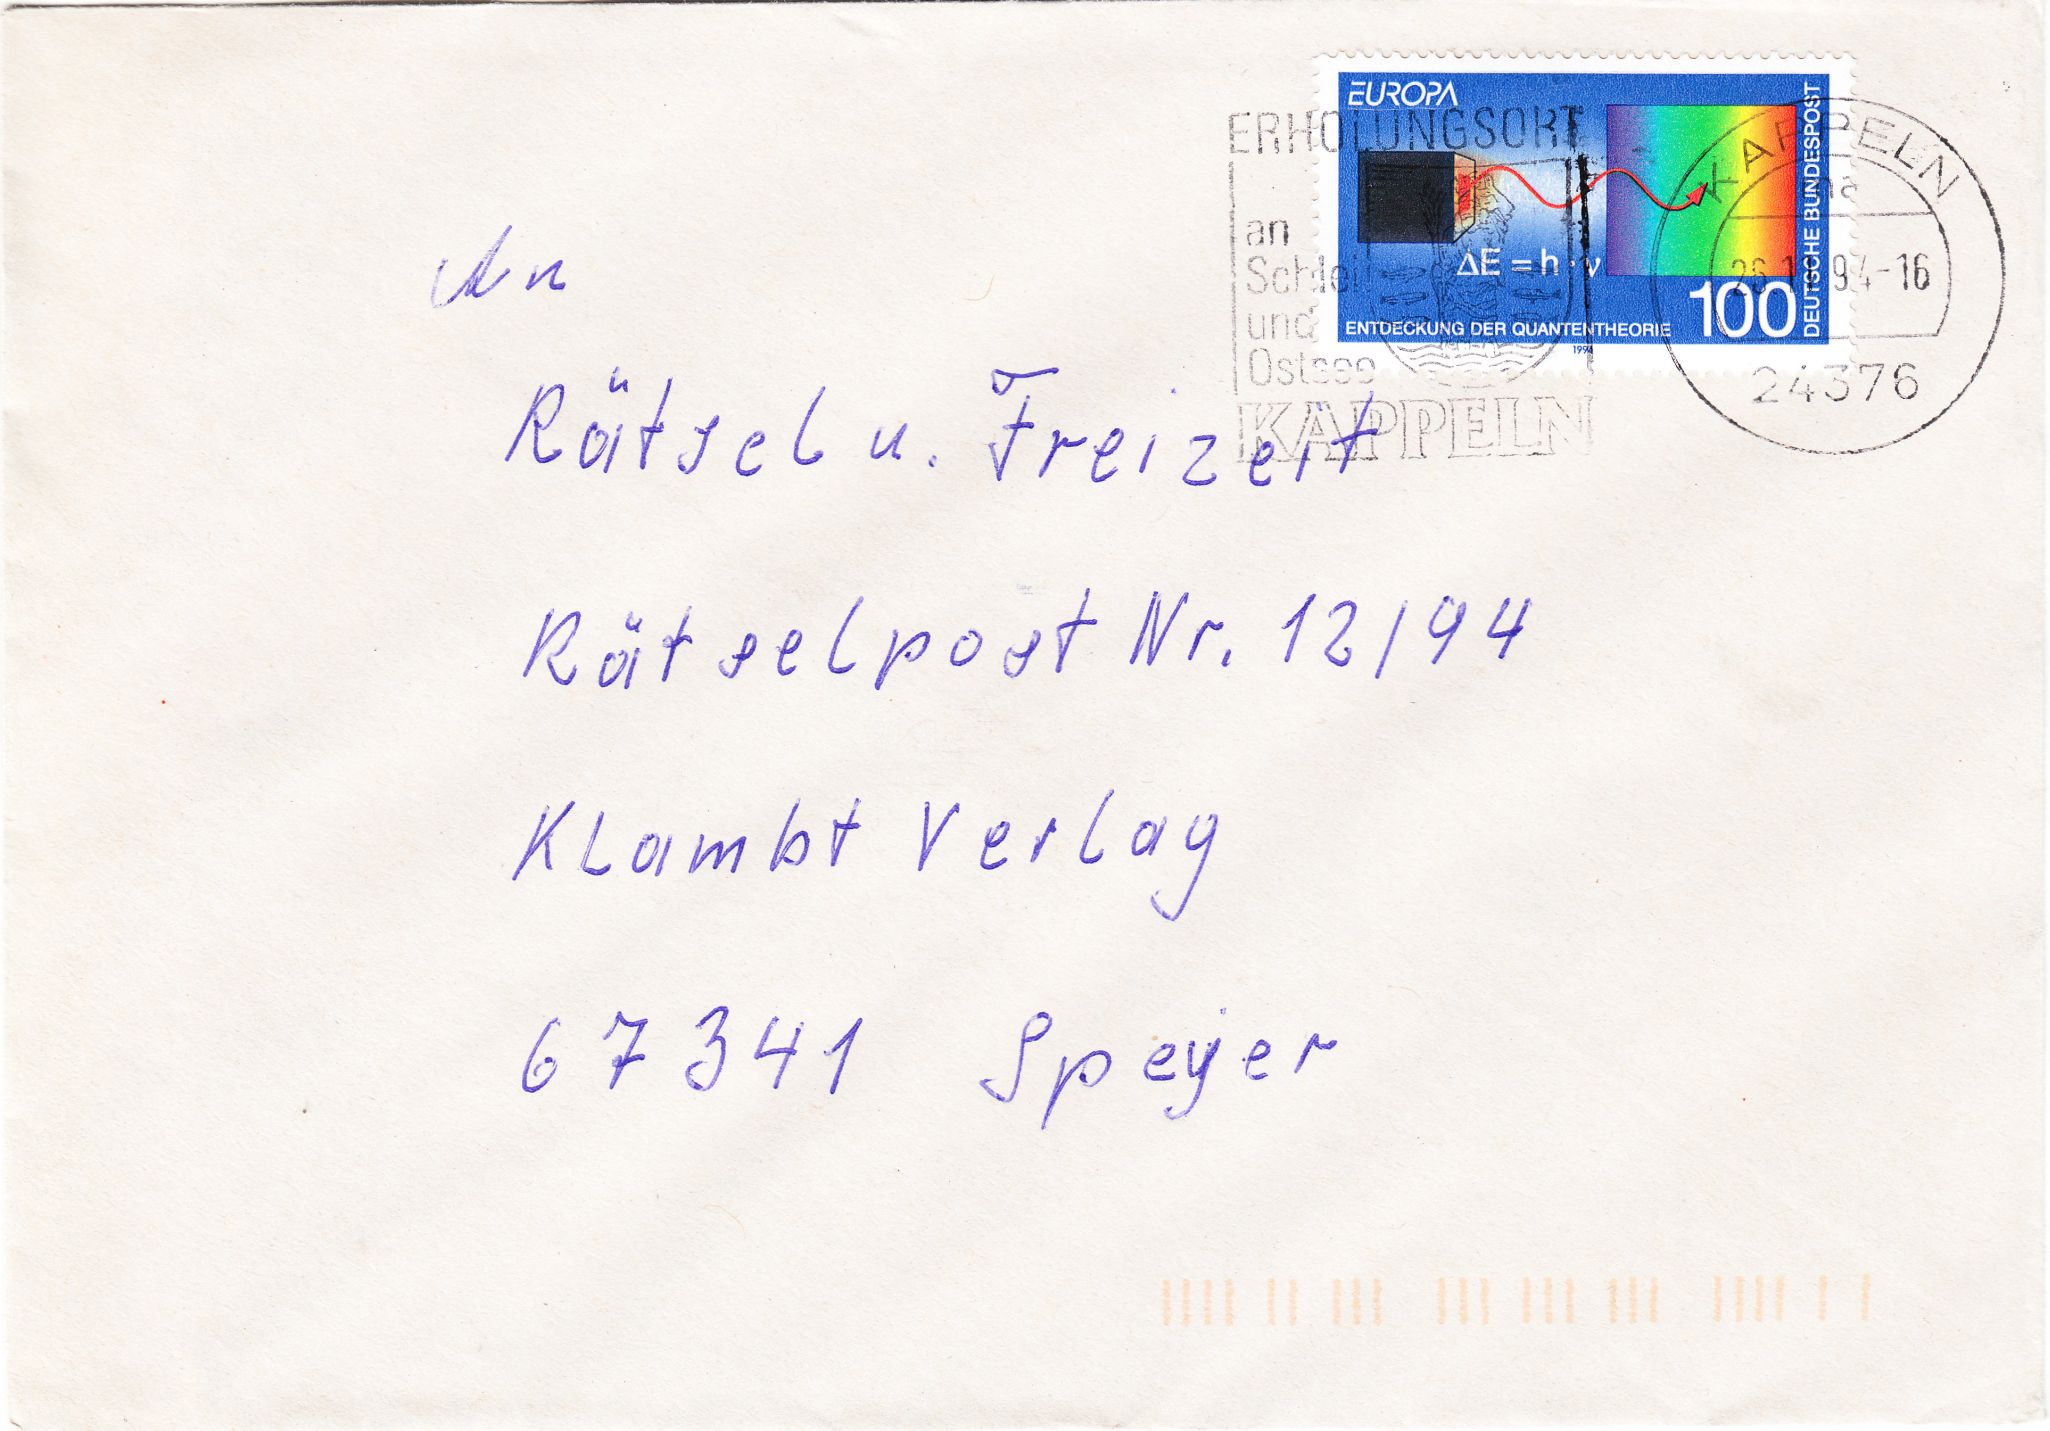 EUROPA
ΔE = h · ν
100
ENTDECKUNG DER QUANTENTHEORIE
DEUTSCHE BUNDESPOST
1994
ERHOLUNGSORT
an
Schlei
und
Ostsee
KAPPELN
KAPPELN
94-16
24376
An
Rätsel u. Freizeit
Rätselpost Nr. 12/94
Klambt Verlag
67341 Speyer